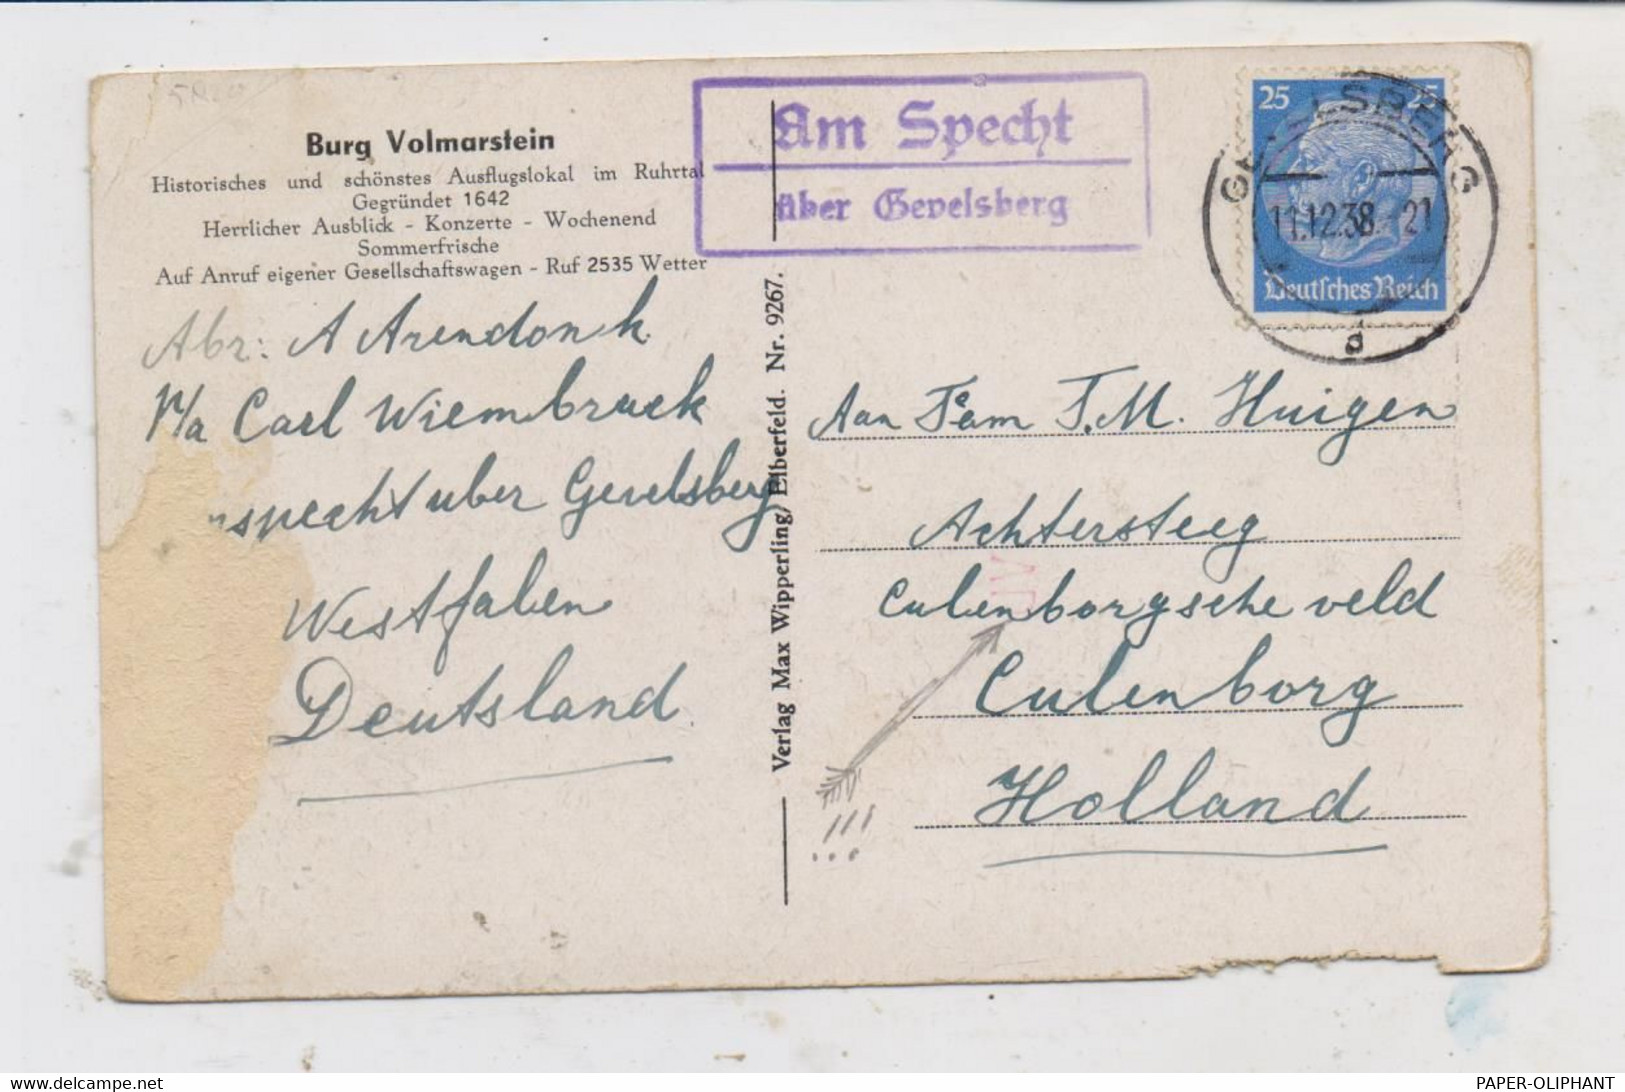 Burg Volmarstein
Historisches und schönstes Ausflugslokal im Ruhrtal
Gegründet 1642
Herrlicher Ausblick - Konzerte - Wochenend
Sommerfrische
Auf Anruf eigener Gesellschaftswagen - Ruf 2535 Wetter
Am Specht
über Gevelsberg
25 25
Deutsches Reich
GEVELSBERG
11.12.38. 21
d
Abr: A Arendonk
p/a Carl Wiembruck
mspecht uber Gevelsberg
Westfalen
Deutsland
Verlag Max Wipperling, Elberfeld. Nr. 9267.
Aan Fam T.M. Huigen
Achtersteeg
Culenborgsche veld
Culenborg
Holland
!!!
PAPER-OLIPHANT
www.delcampe.net